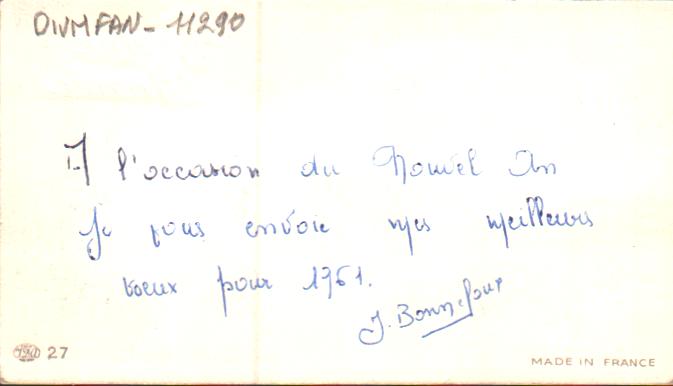 DIVMFAN- 11290
A l'occasion du Nouvel An
Je vous envoie mes meilleurs
voeux pour 1961.
J. Bonnefoux
27
MADE IN FRANCE